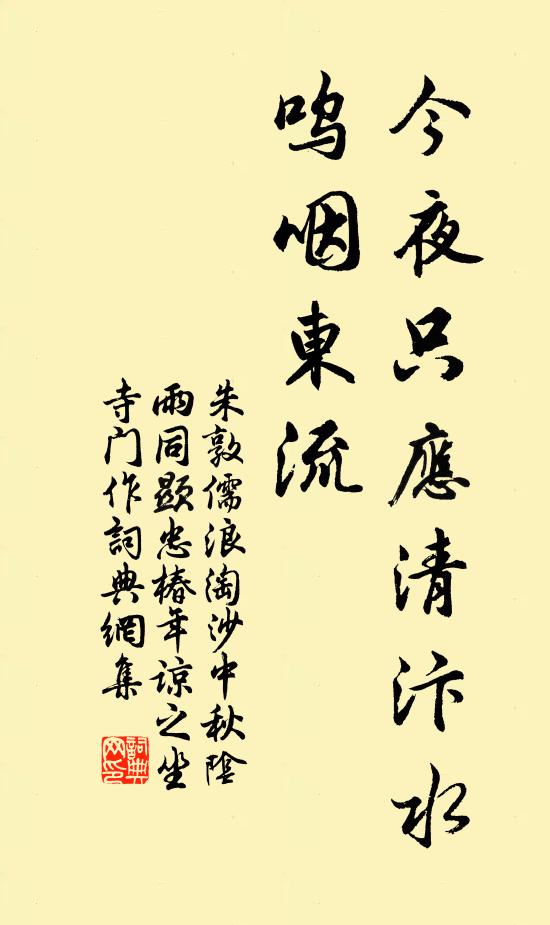 今夜只應清汴水
嗚咽東流
朱敦儒浪淘沙中秋陰
雨同顯忠椿年諒之坐
寺门作詞典網集
詞典网印